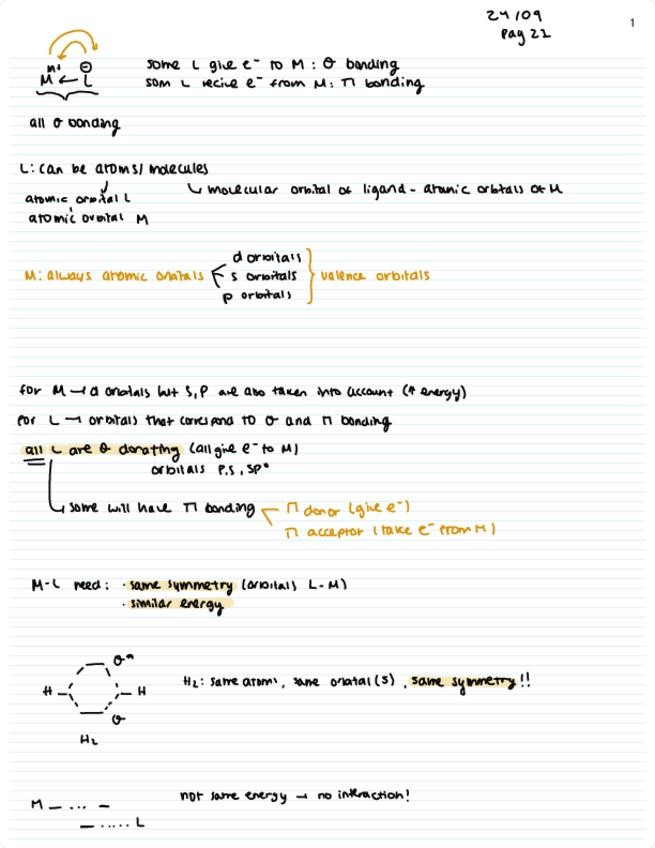 24/09
pag 22
1
M⁺ ⊖
M ← L
some L give e⁻ to M : σ bonding
som L recive e⁻ from M: π bonding
all σ bonding
L: can be atoms/molecules
atomic orbital L
↳ molecular orbital of ligand - atomic orbitals of M
atomic orbital M
M: always atomic orbitals
d orbitals
s orbitals
p orbitals
valence orbitals
for M → d orbitals but s,p are also taken into account (↑ energy)
for L → orbitals that correspond to σ and π bonding
all L are σ donating (all give e⁻ to M)
orbitals p,s, sp*
↳ some will have π bonding
π donor (give e⁻)
π acceptor (take e⁻ from M)
M-L need: · same symmetry (orbitals L-M)
· similar energy
σ*
H H
σ
H₂
H₂: same atoms, same orbital (s), same symmetry!!
not same energy → no interaction!
M — ... —
— ..... L